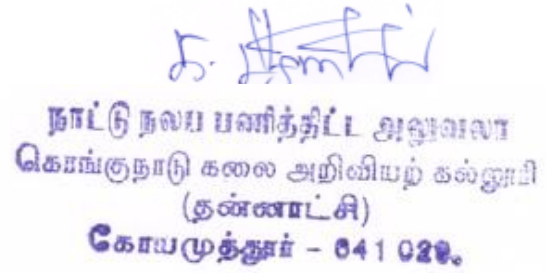 நாட்டு நலப் பணித்திட்ட அலுவலர்
கொங்குநாடு கலை அறிவியற் கல்லூரி
(தன்னாட்சி)
கோயமுத்தூர் - 641 029.